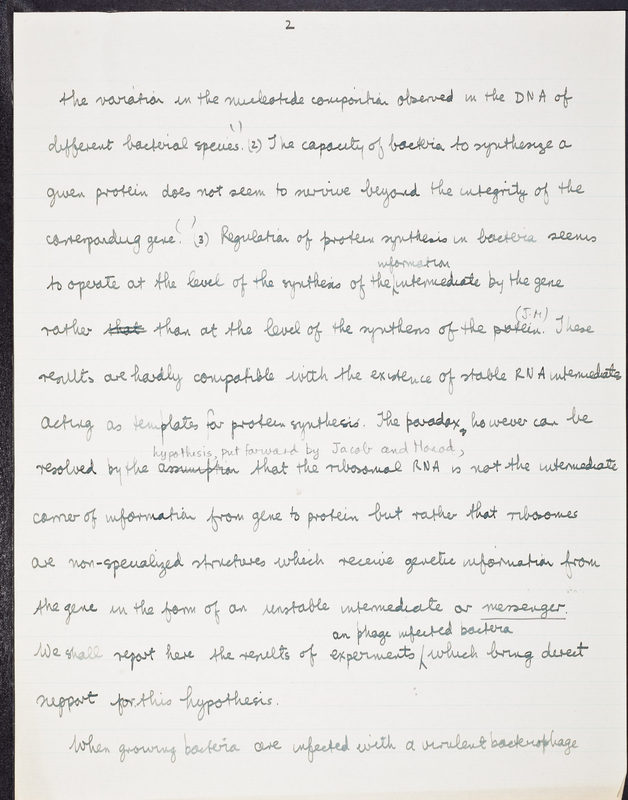 2
the variation in the nucleotide composition observed in the DNA of
different bacterial species.( ) (2) The capacity of bacteria to synthesize a
given protein does not seem to survive beyond the integrity of the
corresponding gene.( ) (3) Regulation of protein synthesis in bacteria seems
information
to operate at the level of the synthesis of the intermediate by the gene
(J.M)
rather that than at the level of the synthesis of the protein. These
results are hardly compatible with the existence of stable RNA intermediates
acting as templates for protein synthesis. The paradox, however can be
hypothesis, put forward by Jacob and Monod,
resolved by the assumption that the ribosomal RNA is not the intermediate
carrier of information from gene to protein but rather that ribosomes
are non-specialized structures which receive genetic information from
the gene in the form of an unstable intermediate or messenger.
on phage infected bacteria
We shall report here the results of experiments which bring direct
support for this hypothesis.
When growing bacteria are infected with a virulent bacteriophage